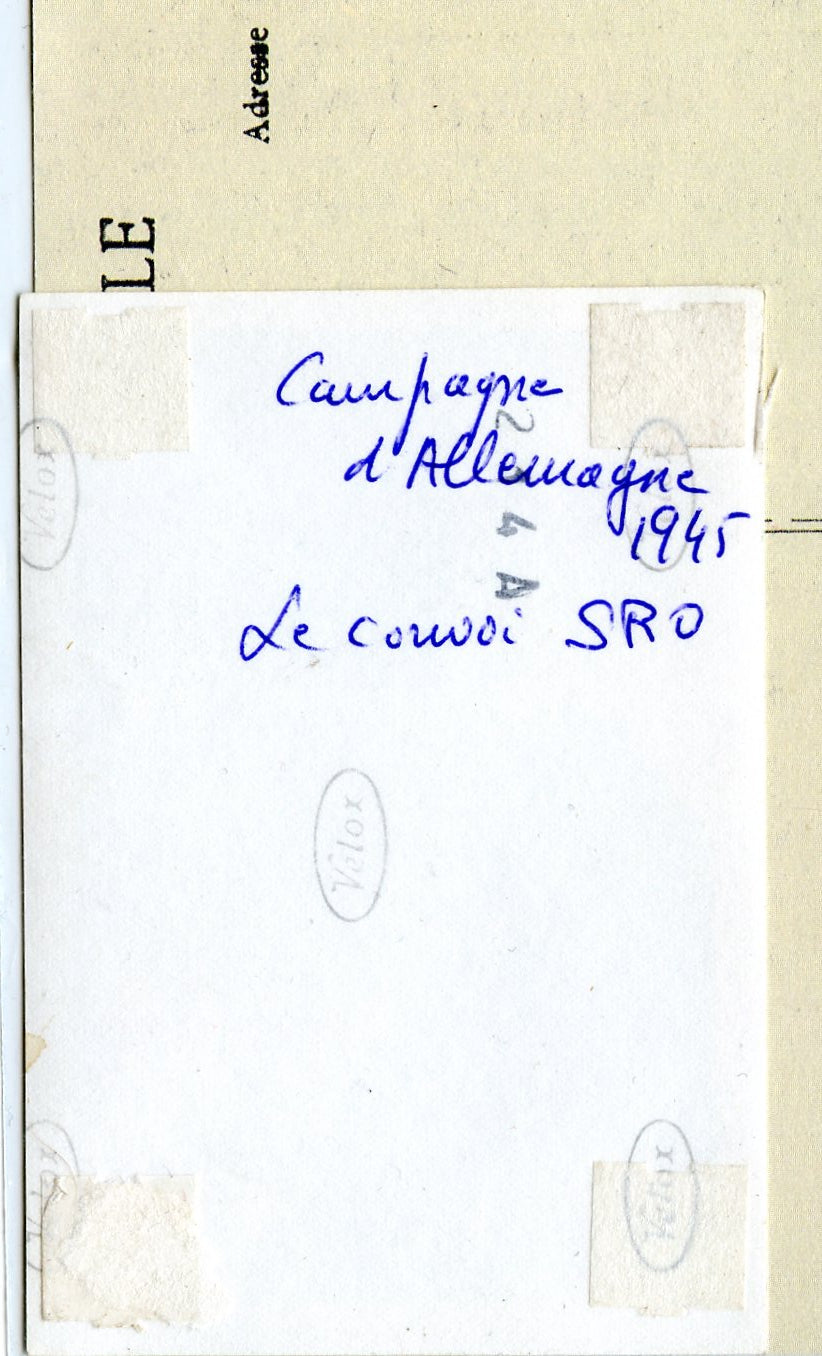 Adresse
LE
Campagne
d'Allemagne
1945
Le convoi SRO
4 A
Velox
Velox
Velox